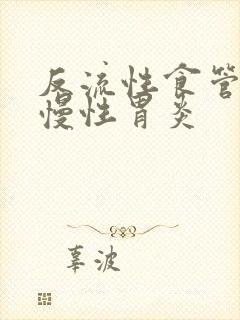 反流性食管
慢性胃炎
辜波